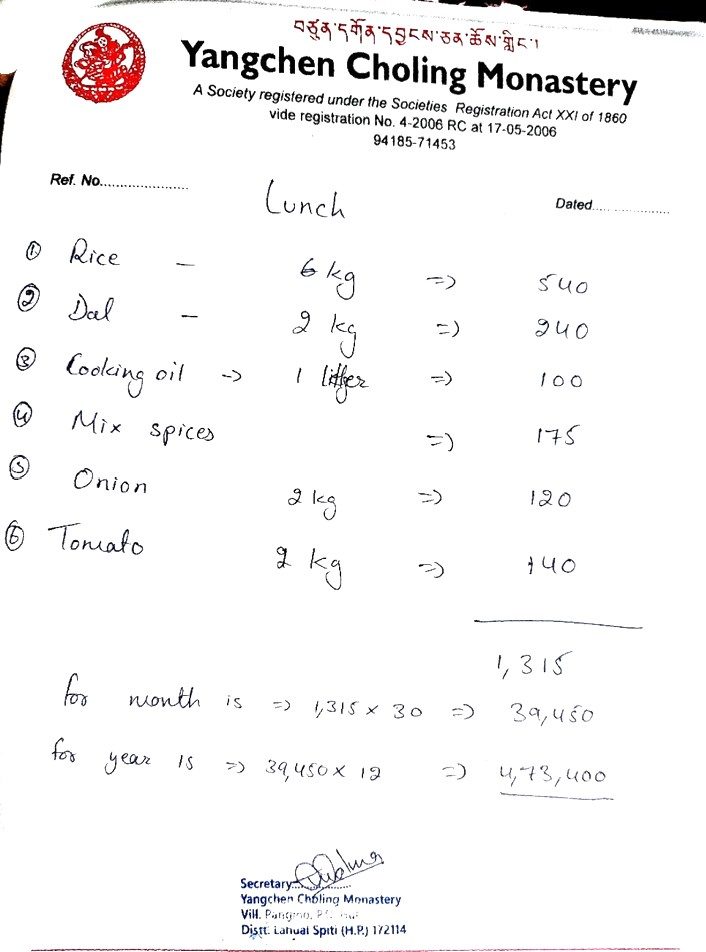 བཙུན་དགོན་དབྱངས་ཅན་ཆོས་གླིང་།
Yangchen Choling Monastery
A Society registered under the Societies Registration Act XXI of 1860
vide registration No. 4-2006 RC at 17-05-2006
94185-71453
Ref. No......................
Lunch
Dated......................
① Rice — 6 kg => 540
② Dal — 2 kg => 240
③ Cooking oil -> 1 litter => 100
④ Mix spices => 175
⑤ Onion 2 kg => 120
⑥ Tomato 2 kg => 140
1,315
for month is => 1,315 x 30 => 39,450
for year is => 39,450 x 12 => 4,73,400
Secretary:
Yangchen Choling Monastery
Vill.
Distt. Lahual Spiti (H.P.) 172114